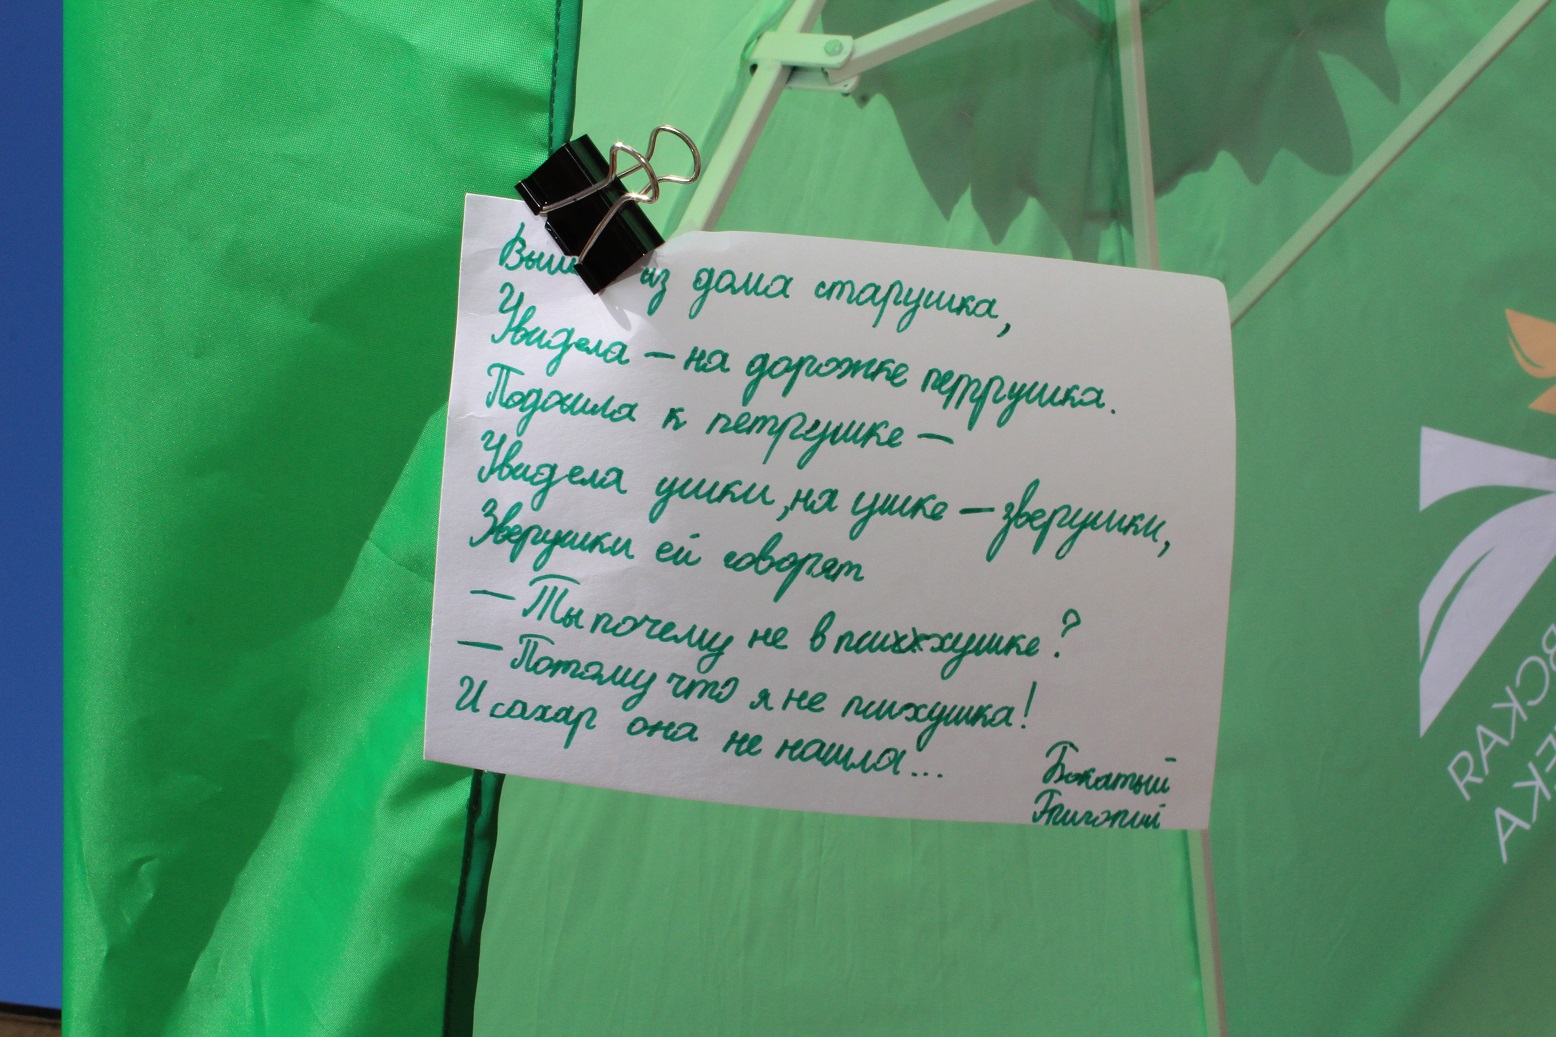 Выш из дома старушка,
Увидела — на дорожке петрушка.
Подошла к петрушке —
Увидела ушки, на ушке — зверушки,
Зверушки ей говорят
— Ты почему не в психушке?
— Потому что я не психушка!
И сахар она не нашла...
Бокатый
Григорий
ВСКАЯ
ЕКА